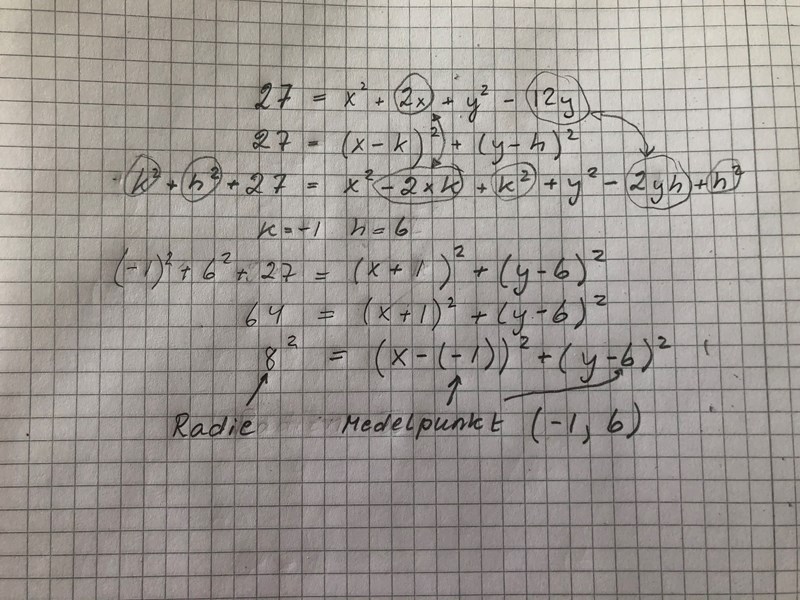 27 = x² + 2x + y² - 12y
27 = (x-k)² + (y-h)²
k² + h² + 27 = x² - 2xk + k² + y² - 2yh + h²
k=-1 h=6
(-1)² + 6² + 27 = (x+1)² + (y-6)²
64 = (x+1)² + (y-6)²
8² = (x-(-1))² + (y-6)²
Radie Medelpunkt (-1, 6)